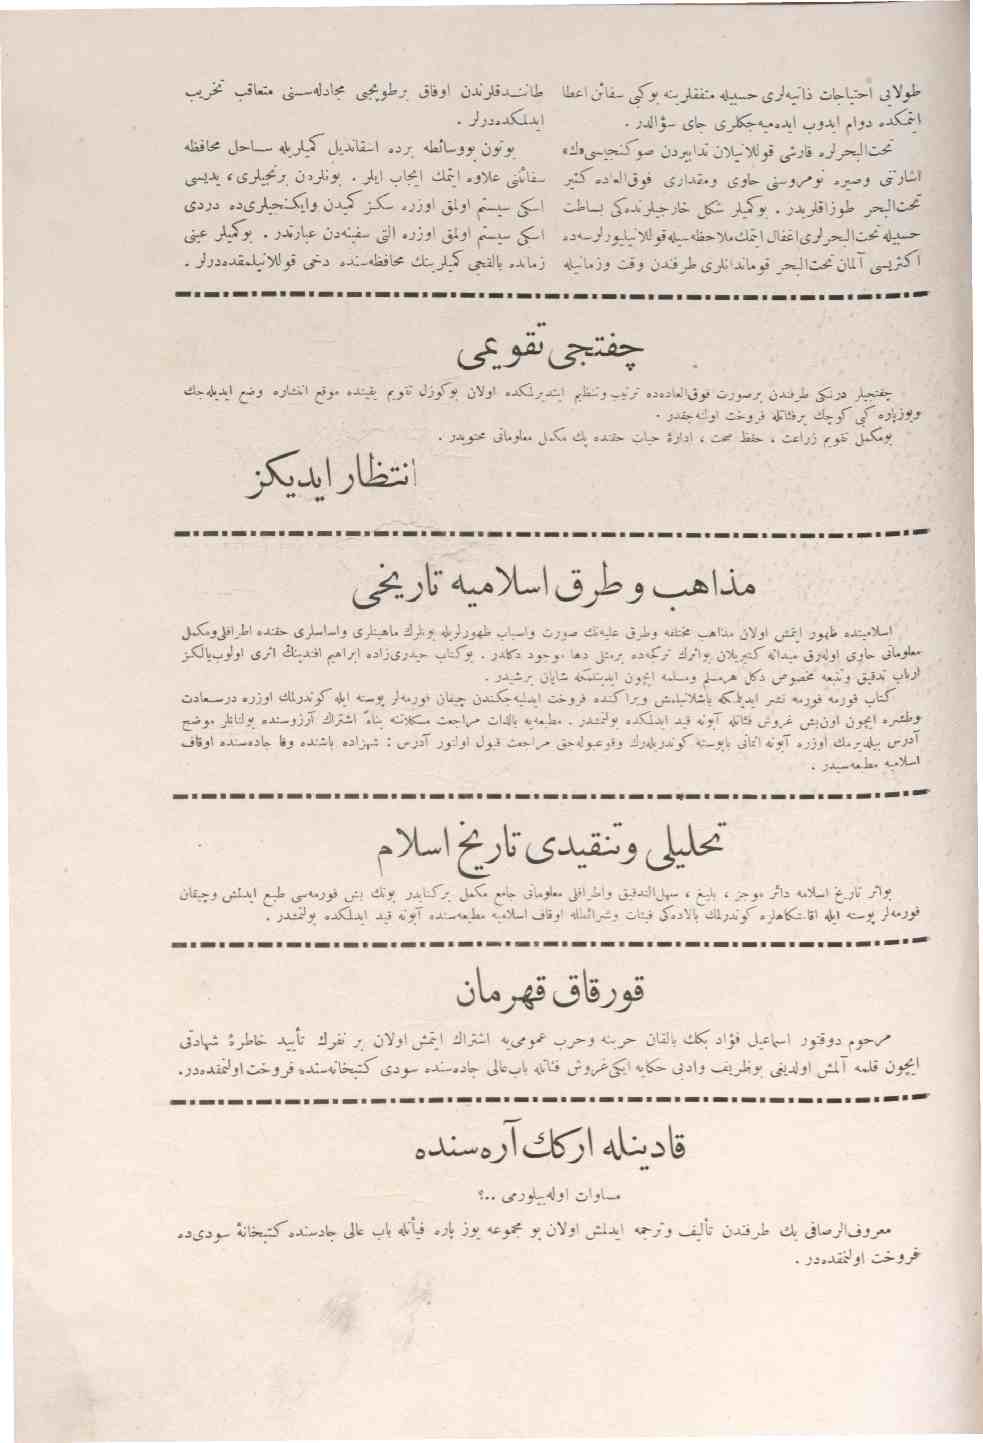 طولایی احتیاجات ذاتیه‌لری حسبیله متفقلرینه بوکبی سفائن اعطا
ایتمکده دوام ایدوب ایده‌میه‌جکلری جای سؤالدر .
تحت‌البحرلره قارشی قوللانیلان تدابیردن صوکنجیسی «ك»
اشارتنی وصیره نومروسنی حاوی ومقداری فوق‌العاده کثیر
تحت‌البحر طوزاقلریدر . بوکمیلر شکل خارجیلرنده‌کی بساطت
حسبیله تحت‌البحرلری اغفال ایتمك ملاحظه‌سیله قوللانیلیورلرسه‌ده
اکثریسی آلمان تحت‌البحر قوماندانلری طرفندن وقت وزمانیله
طانندقلرندن اوفاق برطوپجی مجادله‌سنی متعاقب تخریب
ایدلمکده‌درلر .
بوتون بووسائطه برده اسقاندیل کمیلریله ساحل محافظه
سفائننی علاوه ایتمك ایجاب ایلر . بونلردن برنجیلری ، یدیسی
اسکی سیستم اولمق اوزره سکز کمیدن وایکنجیلری‌ده دردی
اسکی سیستم اولمق اوزره التی سفینه‌دن عبارتدر . بوکمیلر عینی
زمانده بالقجی کمیلرینك محافظه‌سنده دخی قوللانیلمقده‌درلر .
چفتجی تقویمی
چفتجیلر درنکی طرفندن برصورت فوق‌العاده‌ده ترتیب وتنظیم ایتدیرلمکده اولان بوکوزل تقویم یقینده موقع انتشاره وضع ایدیله‌جك
ویوزپاره کبی کوچك برفیئاتله فروخت اولنه‌جقدر .
بومکمل تقویم زراعت ، حفظ صحت ، ادارۀ حیات حقنده پك مکمل معلوماتی محتویدر .
انتظار ایدیکز
مذاهب وطرق اسلامیه تاریخی
اسلامیتده ظهور ایتمش اولان مذاهب مختلفه وطرق علیه‌نك صورت واسباب ظهورلریله بونلرك ماهیتلری واساسلری حقنده اطرافلی ومکمل
معلوماتی حاوی اوله‌رق میدانه کتیریلان بواثرك ترکجه‌ده برمثلی دها موجود دکلدر . بوکتاب حیدری‌زاده ابراهیم افندینك اثری اولوب یالکز
ارباب تدقیق وتتبعه مخصوص دکل هرمسلم ومسلمه ایچون ایدینمکه شایان برشیدر .
کتاب فورمه فورمه نشر ایدیلمکه باشلانیلمش وبرا کنده فروخت ایدلمیه‌جکندن چیقان فورمه‌لر پوسته ایله کوندرلمك اوزره درسعادت
وطشره ایچون اون‌بش غروش فیئاتله آبونه قید ایدلمکده بولنمشدر . مطبعه‌یه بالذات مراجعت مشکلاتنه بناءً اشتراك آرزوسنده بولنانلر موضح
آدرس بیلدیرمك اوزره آبونه اثمانی باپوسته کوندریله‌رك وقوعبوله‌جق مراجعت قبول اولنور آدرس : شهزاده باشنده وفا جاده‌سنده اوقاف
اسلامیه مطبعه‌سیدر .
تحلیلی وتنقیدی تاریخ اسلام
بواثر تاریخ اسلامه دائر موجز ، بلیغ ، سهل‌التدقیق واطرافلی معلوماتی جامع مکمل برکتابدر بونك بش فورمه‌سی طبع ایدلمش وچیقان
فورمه‌لر پوسته ایله اقامتکاهلره کوندرلمك بالاده‌کی فیئات وشرائطله اوقاف اسلامیه مطبعه‌سنده آبونه قید ایدلمکده بولنمشدر .
قورقاق قهرمان
مرحوم دوقتور اسماعیل فؤاد بکك بالقان حربنه وحرب عمومی‌یه اشتراك ایتمش اولان بر نفرك تأیید خاطرۀ شهادتی
ایچون قلمه آلمش اولدیغی بوظریف وادبی حکایه ایکی غروش فیئاتله باب‌عالی جاده‌سنده سودی کتبخانه‌سنده فروخت اولنمقده‌در.
قادینله ارکك آره‌سنده
مساوات اوله‌بیلورمی ..؟
معروف‌الرصافی بك طرفندن تألیف وترجمه ایدلمش اولان بو مجموعه یوز پاره فیأتله باب عالی جادسنده کتبخانۀ سودی‌ده
فروخت اولنمقده‌در .